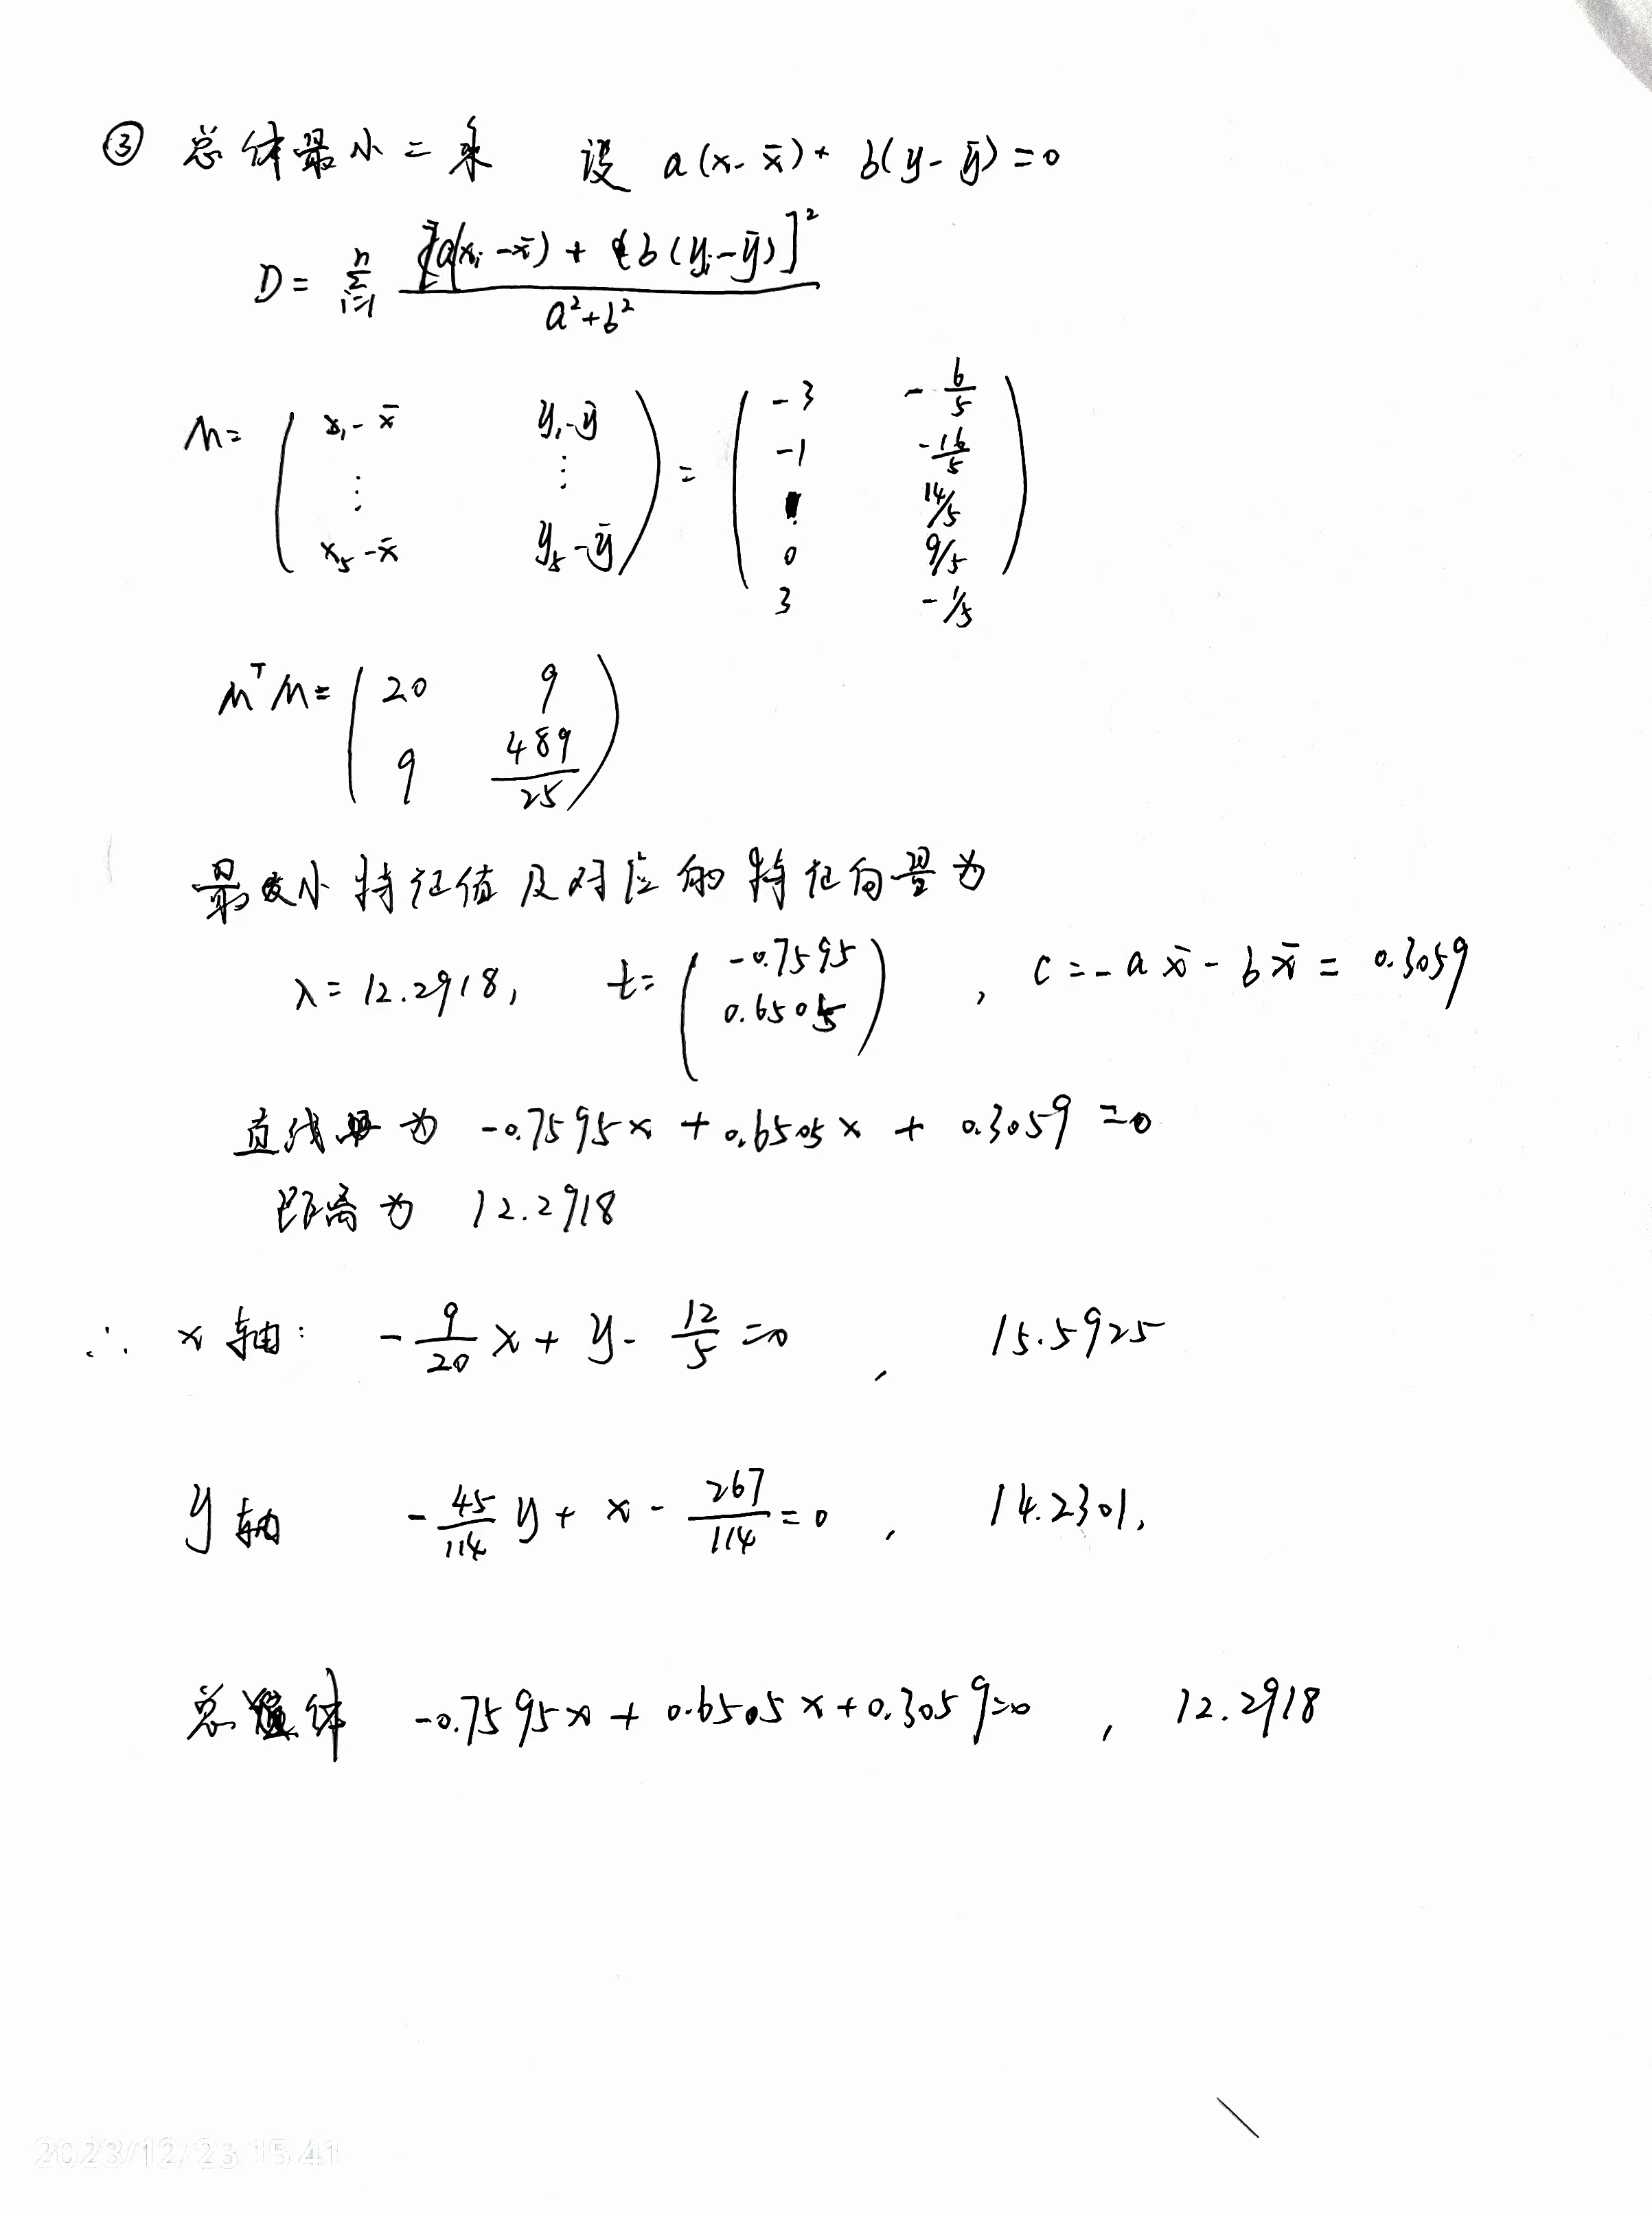 ③ 总体最小二乘 设 a(x-x̄)+b(y-ȳ)=0
D= Σ_{i=1}^{n} [a(xᵢ-x̄)+b(yᵢ-ȳ)]² / (a²+b²)
M= ( x₁-x̄ y₁-ȳ ⋮ ⋮ x₅-x̄ y₅-ȳ ) = ( -3 -6/5
-1 -16/5
1 14/5
0 9/5
3 -1/5 )
MᵀM= ( 20 9
9 489/25 )
最小特征值及对应的特征向量为
λ=12.2918, t= ( -0.7595 0.6505 ) , c=-ax̄-bx̄=0.3059
直线为 -0.7595x+0.6505x+0.3059=0
距离为 12.2918
∴ x轴: -9/20 x+y-12/5=0 , 15.5925
y轴 -45/114 y+x-267/114=0 , 14.2301,
总体 -0.7595x+0.6505x+0.3059=0 , 12.2918
2023/12/23 15:41